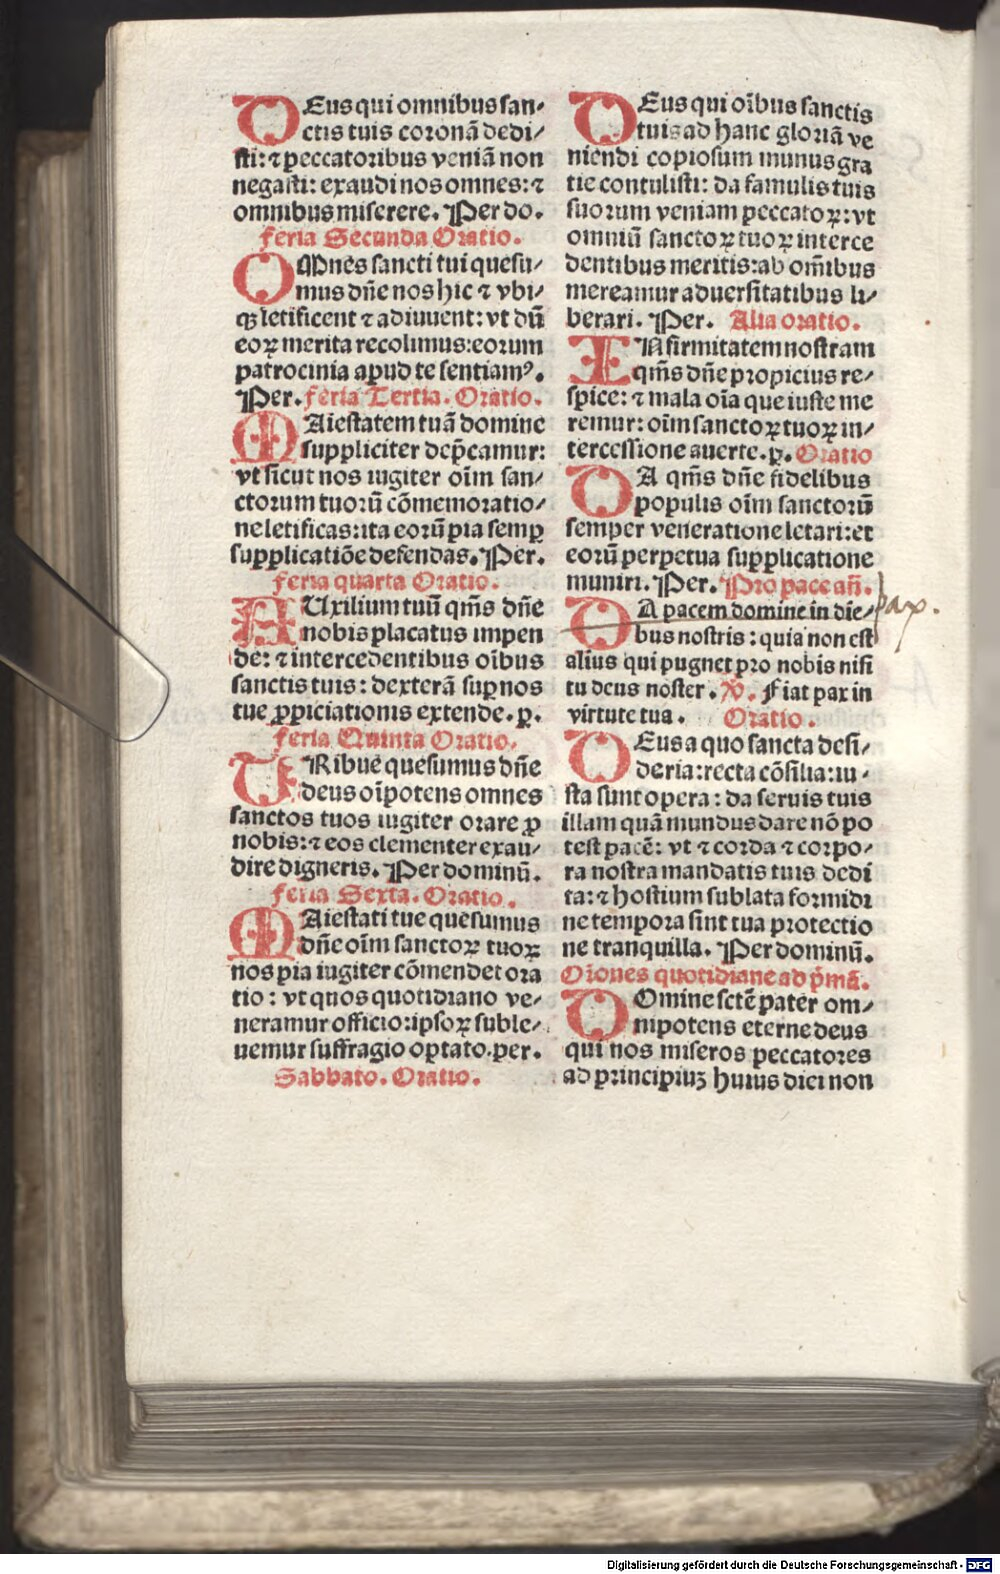 DEus qui omnibus san⸗
ctis tuis coronā dedi⸗
sti: ⁊ peccatoribus veniā non
negasti: exaudi nos omnes: ⁊
omnibus miserere. Per do.
feria Secunda Oratio.
OMnes sancti tui quesu⸗
mus dn̄e nos hic ⁊ vbi⸗
qꝫ letificent ⁊ adiuuent: vt dū
eoꝝ merita recolimus: eorum
patrocinia apud te sentiamꝰ.
Per. feria Tertia. Oratio.
MAiestatem tuā domine
suppliciter dep̄camur:
vt sicut nos iugiter oīm san⸗
ctorum tuorū cōmemoratio⸗
ne letificas: ita eorū pia semꝑ
supplicatiōe defendas. Per.
feria quarta Oratio.
AUxilium tuū qm̄s dn̄e
nobis placatus impen
de: ⁊ intercedentibus oībus
sanctis tuis: dexterā sup nos
tue ꝓpiciationis extende. p.
feria Quinta Oratio.
TRibue quesumus dn̄e
deus oīpotens omnes
sanctos tuos iugiter orare ꝓ
nobis: ⁊ eos clementer exau⸗
dire digneris. Per dominū.
feria Sexta. Oratio.
MAiestati tue quesumus
dn̄e oīm sanctoꝝ tuoꝝ
nos pia iugiter cōmendet ora
tio: vt quos quotidiano ve⸗
neramur officio: ipsoꝝ suble⸗
uemur suffragio optato. per.
Sabbato. Oratio.
DEus qui oībus sanctis
tuis ad hanc gloriā ve
niendi copiosum munus gra
tie contulisti: da famulis tuis
suorum veniam peccatoꝝ: vt
omniū sanctoꝝ tuoꝝ interce
dentibus meritis: ab om̄ibus
mereamur aduersitatibus li⸗
berari. Per. Alia oratio.
INfirmitatem nostram
qm̄s dn̄e propicius re⸗
spice: ⁊ mala oīa que iuste me
remur: oīm sanctoꝝ tuoꝝ in⸗
tercessione auerte. p. Oratio
DA qm̄s dn̄e fidelibus
populis oīm sanctorū
semper veneratione letari: et
eorū perpetua supplicatione
muniri. Per. Pro pace an̄.
DA pacem domine in die⸗ pax.
bus nostris: quia non est
alius qui pugnet pro nobis nisi
tu deus noster. ℣. Fiat pax in
virtute tua. Oratio.
DEus a quo sancta desi⸗
deria: recta cōsilia: iu⸗
sta sunt opera: da seruis tuis
illam quā mundus dare nō po
test pacē: vt ⁊ corda ⁊ corpo⸗
ra nostra mandatis tuis dedi
ta: ⁊ hostium sublata formidi
ne tempora sint tua protectio
ne tranquilla. Per dominū.
Oīones quotidiane ad p̄mā.
DOmine sctē pater om⸗
nipotens eterne deus
qui nos miseros peccatores
ad principiuꝫ huius diei non
Digitalisierung gefördert durch die Deutsche Forschungsgemeinschaft - DFG